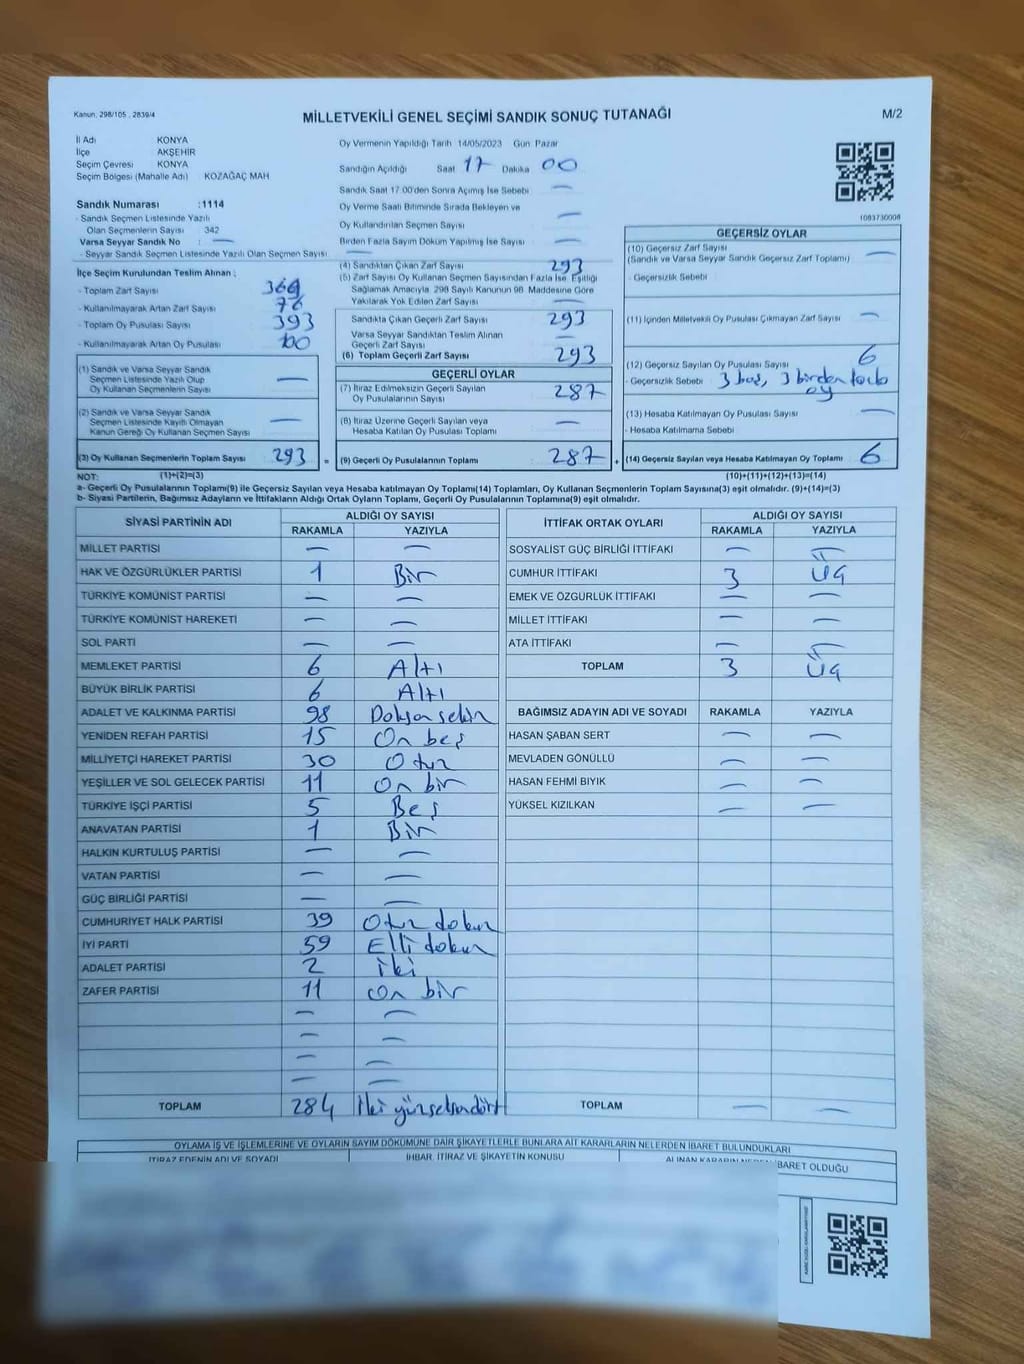 Kanun, 298/105 , 2839/4
MİLLETVEKİLİ GENEL SEÇİMİ SANDIK SONUÇ TUTANAĞI
M/2
İl Adı KONYA
İlçe AKŞEHİR
Seçim Çevresi KONYA
Seçim Bölgesi (Mahalle Adı) KOZAĞAÇ MAH
Sandık Numarası :1114
- Sandık Seçmen Listesinde Yazılı
Olan Seçmenlerin Sayısı 342
Varsa Seyyar Sandık No : —
- Seyyar Sandık Seçmen Listesinde Yazılı Olan Seçmen Sayısı —
İlçe Seçim Kurulundan Teslim Alınan ;
- Toplam Zarf Sayısı 369
- Kullanılmayarak Artan Zarf Sayısı 76
- Toplam Oy Pusulası Sayısı 393
- Kullanılmayarak Artan Oy Pusulası 100
(1) Sandık ve Varsa Seyyar Sandık
Seçmen Listesinde Yazılı Olup
Oy Kullanan Seçmenlerin Sayısı —
(2) Sandık ve Varsa Seyyar Sandık
Seçmen Listesinde Kayıtlı Olmayan
Kanun Gereği Oy Kullanan Seçmen Sayısı —
(3) Oy Kullanan Seçmenlerin Toplam Sayısı 293 =
Oy Vermenin Yapıldığı Tarih 14/05/2023 Gün Pazar
Sandığın Açıldığı Saat 17 Dakika 00
Sandık Saat 17:00'den Sonra Açımış İse Sebebi —
Oy Verme Saati Bitiminde Sırada Bekleyen ve
Oy Kullandırılan Seçmen Sayısı —
Birden Fazla Sayım Döküm Yapılmış İse Sayısı —
(4) Sandıktan Çıkan Zarf Sayısı 293
(5) Zarf Sayısı Oy Kullanan Seçmen Sayısından Fazla İse, Eşitliği
Sağlamak Amacıyla, 298 Sayılı Kanunun 98. Maddesine Göre
Yakılarak Yok Edilen Zarf Sayısı —
Sandıkta Çıkan Geçerli Zarf Sayısı 293
Varsa Seyyar Sandıktan Teslim Alınan
Geçerli Zarf Sayısı —
(6) Toplam Geçerli Zarf Sayısı 293
GEÇERLİ OYLAR
(7) İtiraz Edilmeksizin Geçerli Sayılan
Oy Pusulalarının Sayısı 287
(8) İtiraz Üzerine Geçerli Sayılan veya
Hesaba Katılan Oy Pusulası Toplamı —
(9) Geçerli Oy Pusulalarının Toplamı 287 +
1083730008
GEÇERSİZ OYLAR
(10) Geçersiz Zarf Sayısı
(Sandık ve Varsa Seyyar Sandık Geçersiz Zarf Toplamı) —
- Geçersizlik Sebebi
(11) İçinden Milletvekili Oy Pusulası Çıkmayan Zarf Sayısı —
(12) Geçersiz Sayılan Oy Pusulası Sayısı 6
- Geçersizlik Sebebi 3 boş, 3 birden fazla
oy
(13) Hesaba Katılmayan Oy Pusulası Sayısı —
- Hesaba Katılmama Sebebi
(14) Geçersiz Sayılan veya Hesaba Katılmayan Oy Toplamı 6
NOT: (1)+(2)=(3) (10)+(11)+(12)+(13)=(14)
a- Geçerli Oy Pusulalarının Toplamı(9) ile Geçersiz Sayılan veya Hesaba katılmayan Oy Toplamı(14) Toplamları, Oy Kullanan Seçmenlerin Toplam Sayısına(3) eşit olmalıdır. (9)+(14)=(3)
b- Siyasi Partilerin, Bağımsız Adayların ve İttifakların Aldığı Ortak Oyların Toplamı, Geçerli Oy Pusulalarının Toplamına(9) eşit olmalıdır.
SİYASİ PARTİNİN ADI ALDIĞI OY SAYISI
RAKAMLA YAZIYLA
MİLLET PARTİSİ — —
HAK VE ÖZGÜRLÜKLER PARTİSİ 1 Bir
TÜRKİYE KOMÜNİST PARTİSİ — —
TÜRKİYE KOMÜNİST HAREKETİ — —
SOL PARTİ — —
MEMLEKET PARTİSİ 6 Altı
BÜYÜK BİRLİK PARTİSİ 6 Altı
ADALET VE KALKINMA PARTİSİ 98 Doksan sekiz
YENİDEN REFAH PARTİSİ 15 On beş
MİLLİYETÇİ HAREKET PARTİSİ 30 Otuz
YEŞİLLER VE SOL GELECEK PARTİSİ 11 On bir
TÜRKİYE İŞÇİ PARTİSİ 5 Beş
ANAVATAN PARTİSİ 1 Bir
HALKIN KURTULUŞ PARTİSİ — —
VATAN PARTİSİ — —
GÜÇ BİRLİĞİ PARTİSİ — —
CUMHURİYET HALK PARTİSİ 39 Otuz dokuz
İYİ PARTİ 59 Elli dokuz
ADALET PARTİSİ 2 iki
ZAFER PARTİSİ 11 On bir
— —
— —
— —
— —
TOPLAM 284 İki yüz seksen dört
İTTİFAK ORTAK OYLARI ALDIĞI OY SAYISI
RAKAMLA YAZIYLA
SOSYALİST GÜÇ BİRLİĞİ İTTİFAKI — —
CUMHUR İTTİFAKI 3 Üç
EMEK VE ÖZGÜRLÜK İTTİFAKI — —
MİLLET İTTİFAKI — —
ATA İTTİFAKI — —
TOPLAM 3 Üç
BAĞIMSIZ ADAYIN ADI VE SOYADI RAKAMLA YAZIYLA
HASAN ŞABAN SERT — —
MEVLADEN GÖNÜLLÜ — —
HASAN FEHMİ BIYIK — —
YÜKSEL KIZILKAN — —
TOPLAM — —
OYLAMA İŞ VE İŞLEMLERİNE VE OYLARIN SAYIM DÖKÜMÜNE DAİR ŞİKAYETLERLE BUNLARA AİT KARARLARIN NELERDEN İBARET BULUNDUKLARI
İTİRAZ EDENİN ADI VE SOYADI İHBAR, İTİRAZ VE ŞİKAYETİN KONUSU ALINAN KARARIN NEDEN İBARET OLDUĞU